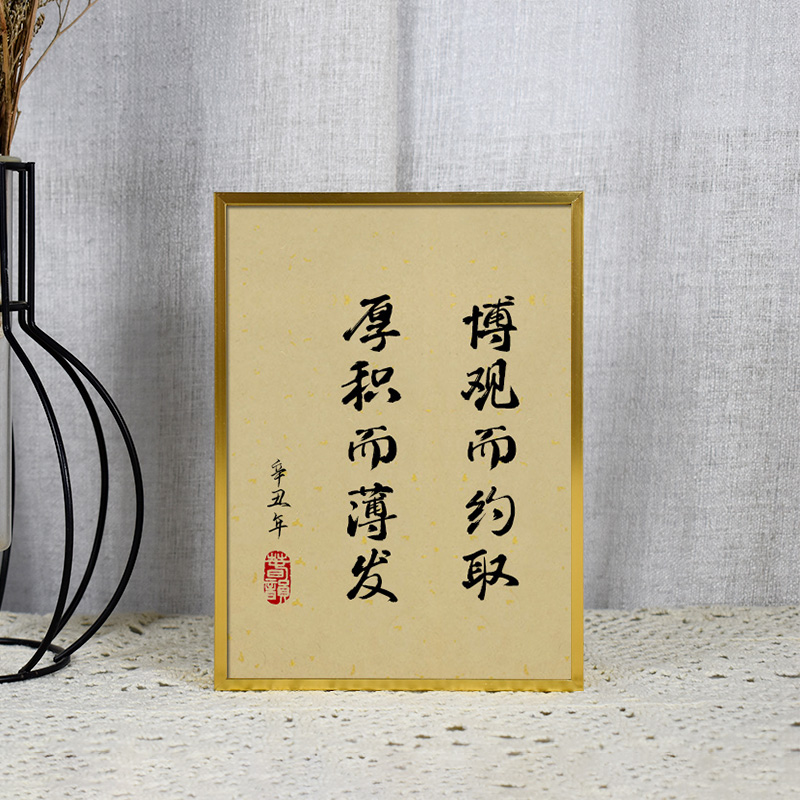 博观而约取
厚积而薄发
辛丑年